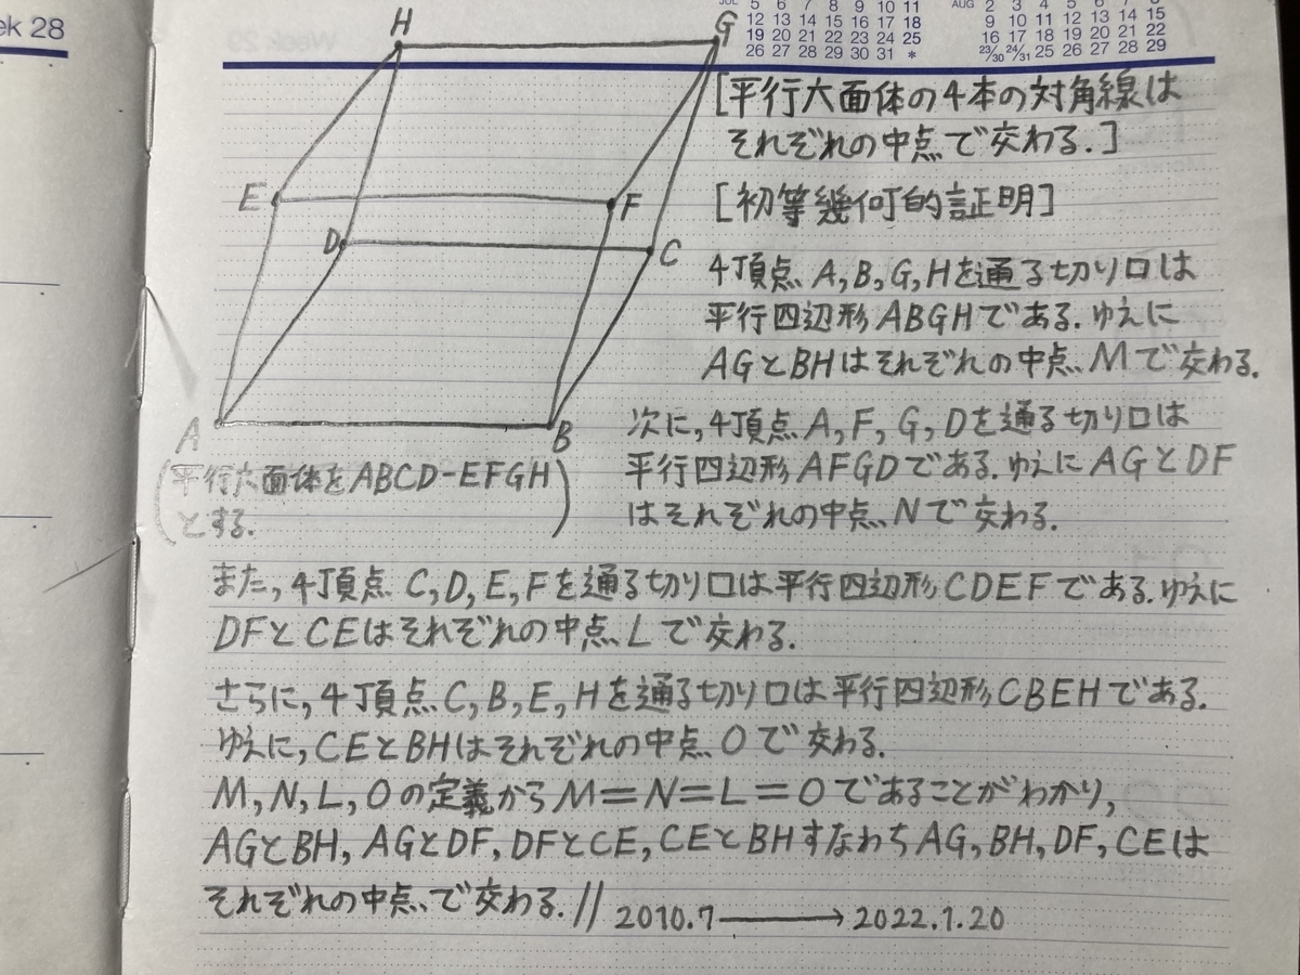 ek 28
H
G
JUL 5 6 7 8 9 10 11
12 13 14 15 16 17 18
19 20 21 22 23 24 25
26 27 28 29 30 31 *
AUG 2 3 4 5 6 7 8
9 10 11 12 13 14 15
16 17 18 19 20 21 22
23/30 24/31 25 26 27 28 29
[平行六面体の4本の対角線は
それぞれの中点で交わる.]
E
F
[初等幾何的証明]
D
C
4頂点A,B,G,Hを通る切り口は
平行四辺形ABGHである.ゆえに
AGとBHはそれぞれの中点Mで交わる.
A
B
(平行六面体をABCD-EFGH
とする.)
次に,4頂点A,F,G,Dを通る切り口は
平行四辺形AFGDである.ゆえにAGとDF
はそれぞれの中点Nで交わる.
また,4頂点C,D,E,Fを通る切り口は平行四辺形CDEFである.ゆえに
DFとCEはそれぞれの中点Lで交わる.
さらに,4頂点C,B,E,Hを通る切り口は平行四辺形CBEHである.
ゆえに,CEとBHはそれぞれの中点Oで交わる.
M,N,L,Oの定義からM=N=L=Oであることがわかり,
AGとBH,AGとDF,DFとCE,CEとBHすなわちAG,BH,DF,CEは
それぞれの中点で交わる.// 2010.7→2022.1.20